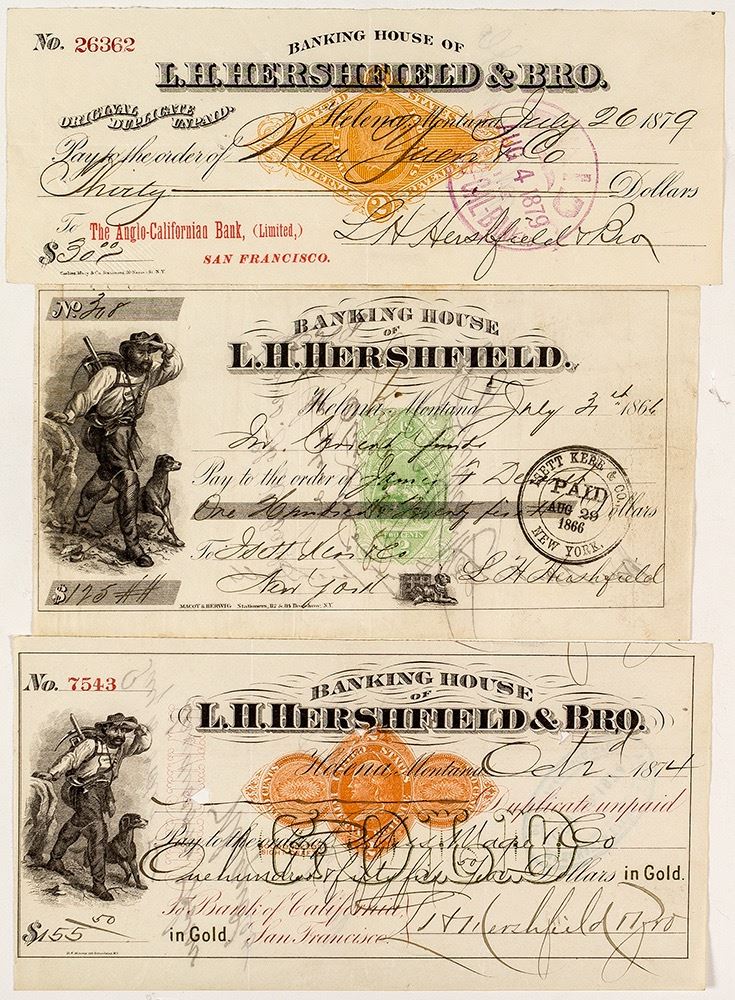 No. 26362
BANKING HOUSE OF
L.H. HERSHFIELD & BRO.
ORIGINAL
DUPLICATE
UNPAID.
Helena, Montana, July 26 1879
Pay to the order of Wau Yuen & Co
Thirty Dollars
To The Anglo-Californian Bank, (Limited,)
SAN FRANCISCO.
$30.00
L H Hershfield & Bro
AUG 4 1879
No. 318
BANKING HOUSE
OF
L.H. HERSHFIELD.
Helena, Montana July 31st 1866
In Current funds
Pay to the order of James F
One Hundred & Twenty five Dollars
To
New York
$125
L H Hershfield
TWO CENTS
KERR & CO.
PAID
AUG 29
1866
NEW YORK.
MACOY & HERWIG Stationers, 112 & 114 Broadway, N.Y.
No. 7543
BANKING HOUSE
OF
L.H. HERSHFIELD & BRO.
Helena, Montana Oct 2d 1874
Duplicate unpaid
Pay to the order of & Co
One hundred & fifty five 50 Dollars in Gold.
To Bank of California,
$155 50 in Gold. San Francisco.
L H Hershfield & Bro